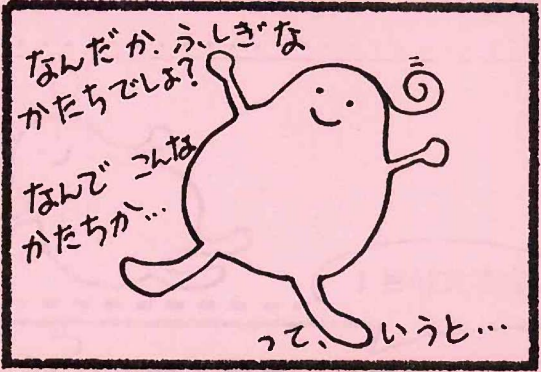 なんだか、ふしぎな
かたちでしょ?
なんで こんな
かたちか…
って、いうと…